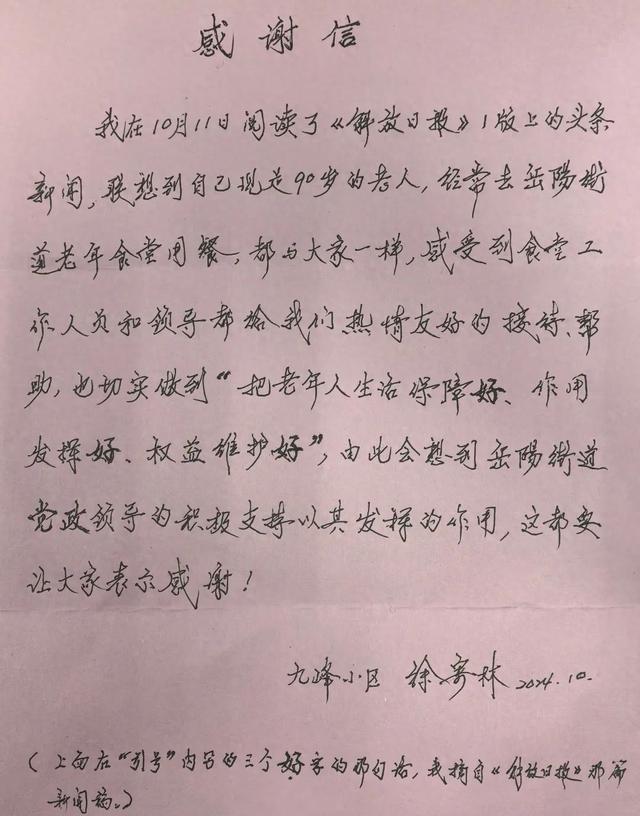 感谢信
我在10月11日阅读了《解放日报》1版上的头条
新闻，联想到自己现是90岁的老人，经常去岳陽街
道老年食堂用餐，都与大家一样，感受到食堂工
作人员和领导都给我们热情友好的接待、帮
助，也切实做到“把老年人生活保障好、作用
发挥好、权益维护好”，由此会想到岳陽街道
党政领导的积极支持以其发挥的作用，这都要
让大家表示感谢！
九峰小区 徐寄林 2024.10.
（上面在“引号”内容的三个好字的那句话，我摘自《解放日报》那篇
新闻稿。）